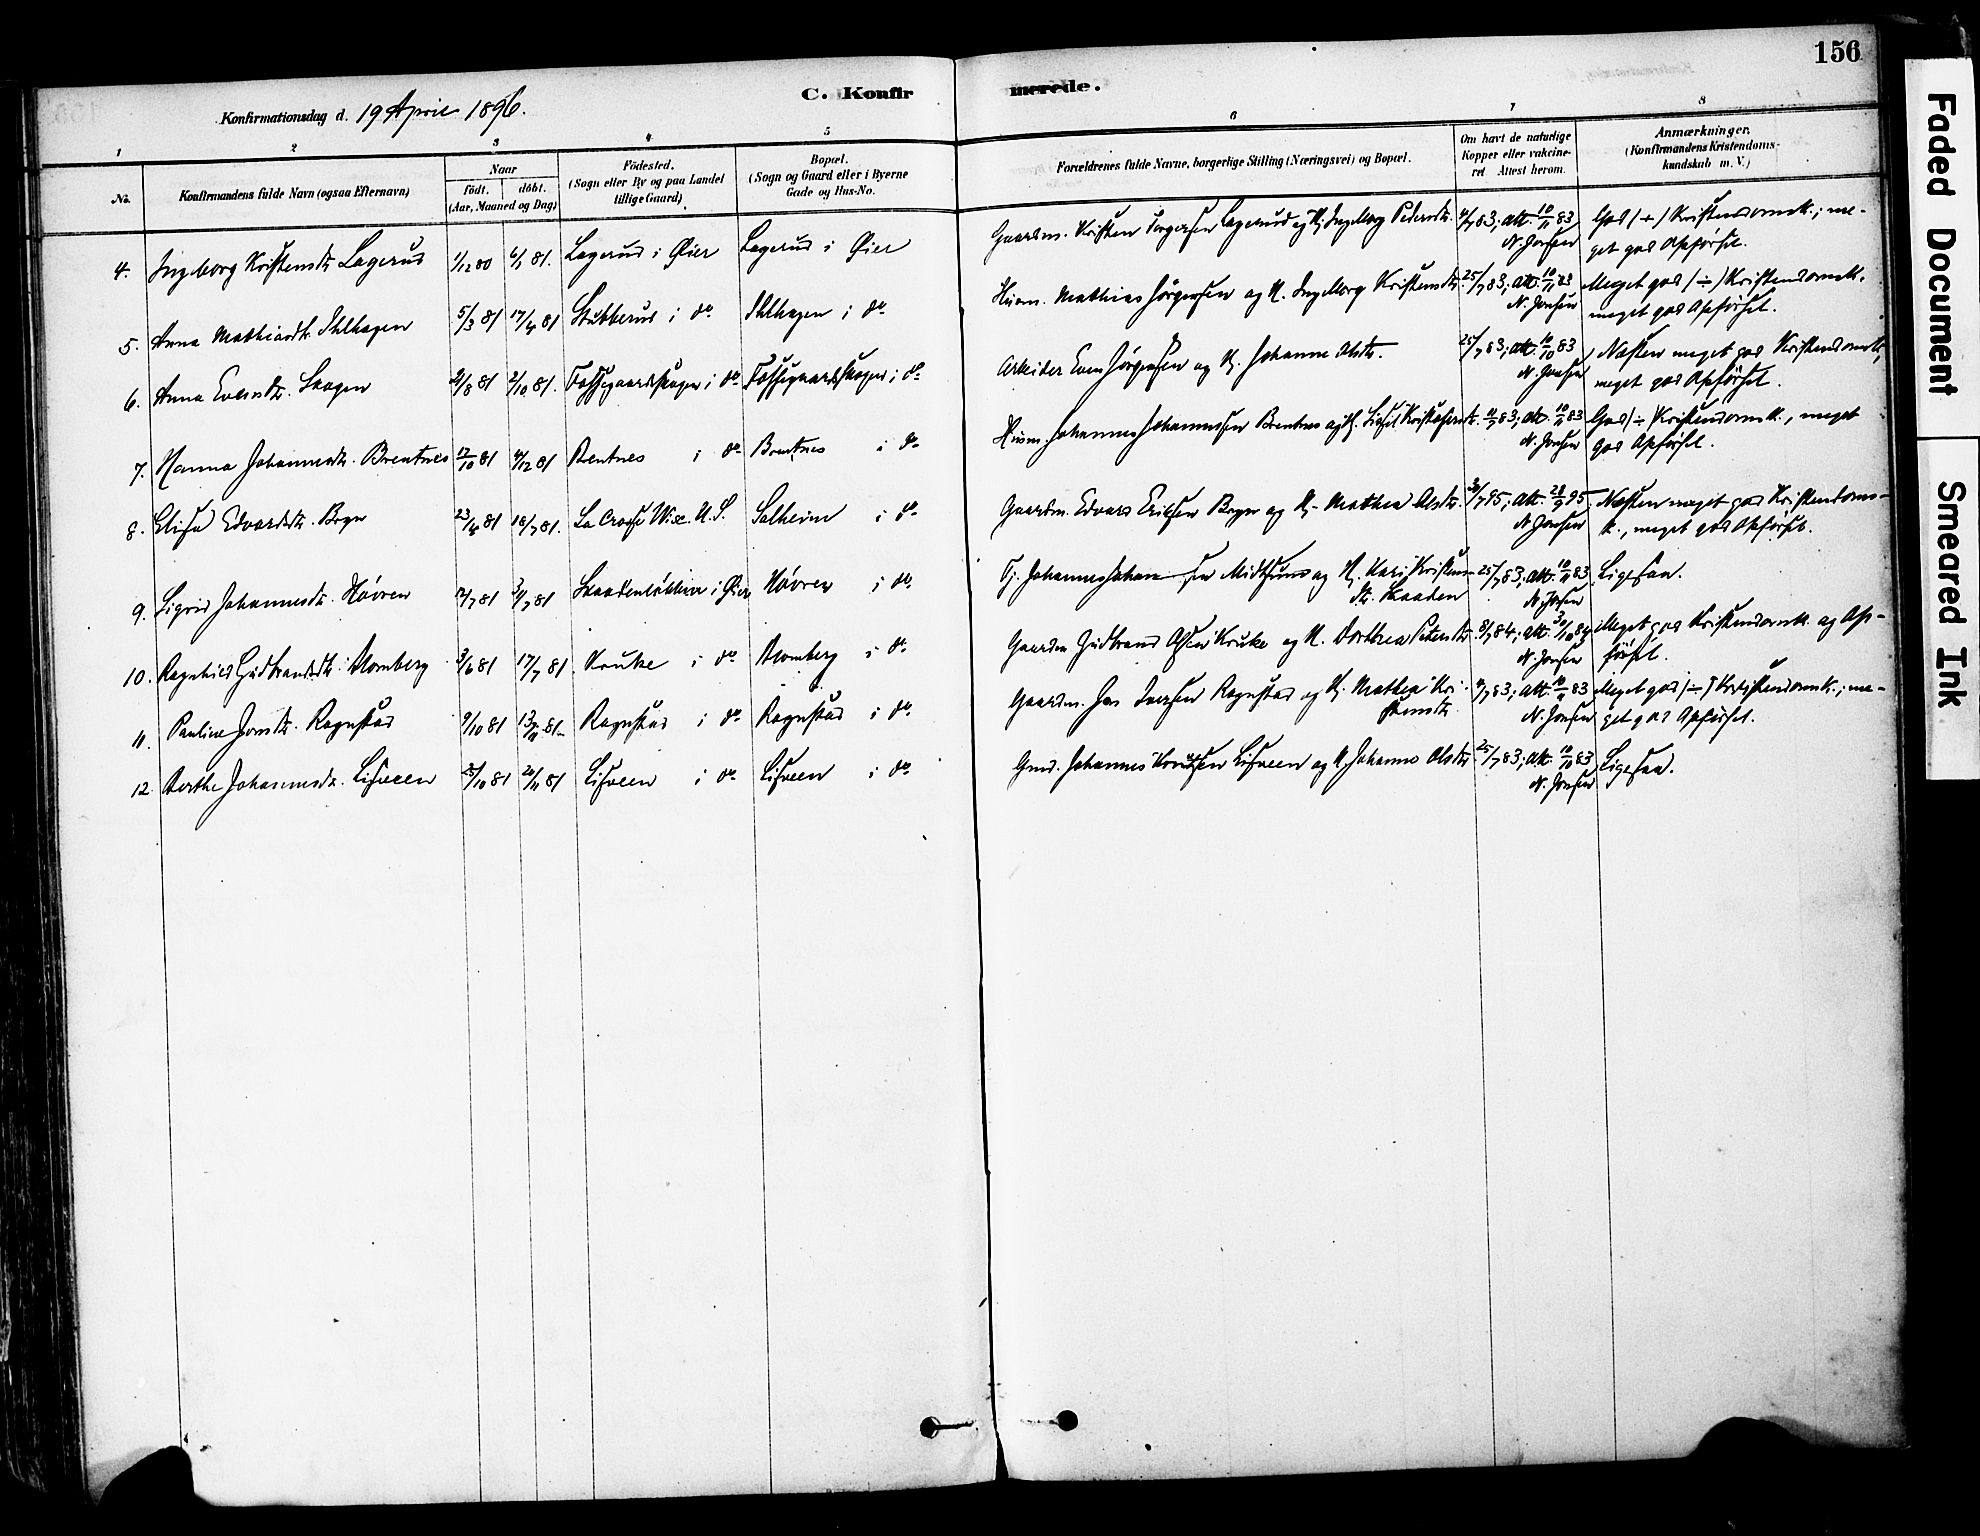 156
C. Konfir merede.
Konfirmationsdag d. 19 April 1896.
1 2 3 4 5 6 7 8
No. Konfirmandens fulde Navn (ogsaa Efternavn) Naar födt. döbt. (Aar, Maaned og Dag) Födested. (Sogn eller By og paa Landet tillige Gaard) Bopæl. (Sogn og Gaard eller i Byerne Gade og Hus-No. Forældrenes fulde Navne, borgerlige Stilling (Næringsvei) og Bopæl. Om havt de naturlige Kopper eller vakcineret Attest herom. Anmærkninger. (Konfirmandens Kristendomskundskab m. V.)
4. Ingeborg Kristensdtr Lagerud 1/12 80 6/1 81. Lagerud i Øier Lagerud i Øier Gaardm. Kristen Torgersen Lagerud og H. Ingeborg Pedersdtr. 83; att. 10/11 83 God (÷) Kristendomsk.; me-
N. Jonsen get god Opförsel.
5. Anna Mathiasdtr. Ihlhagen 5/3 81 17/4 81 Stubberud i do Ihlhagen i do Husm. Mathias Jörgensen og H. Ingeborg Kristensdtr. 25/7 83; att. 10/11 83 Meget god (÷) Kristendomsk.
N. Jonsen meget god Opförsel.
6. Anna Evensdtr. Skogen 21/8 81 2/10 81. Fossegaardsskogen i do Fossegaardsskogen i do Arbeider Even Jörgensen og H. Johanne Olsdtr. 25/7 83; att. 10/10 83 Næsten meget god Kristendomsk.,
N. Jonsen meget god Opförsel.
7. Hanna Johannesdtr. Brentnes 17/10 81 4/12 81 Brentnes i do Brentnes i do Husm. Johannes Johannessen Brentnes og H. Lisbet Kristofersdtr. 83; att. 10/11 83 God (÷) Kristendomsk., meget
N. Jonsen god Opförsel.
8. Elise Edvardsdtr. Bryn 23/4 81 16/7 81. La Crosse Wisc. U.S. Solheim i do Gaardm. Edvard Eriksen Bryn og H. Mathea Olsdtr. 30/7 95; att. 28/9 95 Næsten meget god Kristendoms-
N. Jonsen k., meget god Opförsel.
9. Sigrid Johannesdtr. Høvren 12/7 81 31/7 81 Skaadenløkken i Øier Høvren i do Tj. Johannes Johannessen Midtlund og H. Kari Kristens- 25/7 83; att. 10/11 83 Ligesaa.
dtr. Skaaden N. Jonsen
10. Ragnhild Gudbrandsdtr. Blomberg 3/6 81 17/7 81 Kruke i do Blomberg i do Gaardm Gudbrand Olsen Kruke og H. Dorthea Petersdtr 8/7 84; att. 31/10 84 Meget god Kristendomsk. og Op-
N. Jonsen försel.
11. Pauline Jonsdtr. Rognstad 9/10 81 13/11 81 Rognstad i do Rognstad i do Gaardm. Jon Iversen Rognstad og H. Mathea Kri- 83; att. 10/11 83 Meget god (÷) Kristendomsk.; me-
stensdtr. N. Jonsen get god Opförsel.
12. Berthe Johannesdtr. Lisveen 25/10 81 20/11 81 Lisveen i do Lisveen i do Gmd. Johannes Knutsen Lisveen og H. Johanne Olsdtr 25/7 83; att. 10/11 83 Ligesaa.
N. Jonsen
Faded Document
Smeared Ink